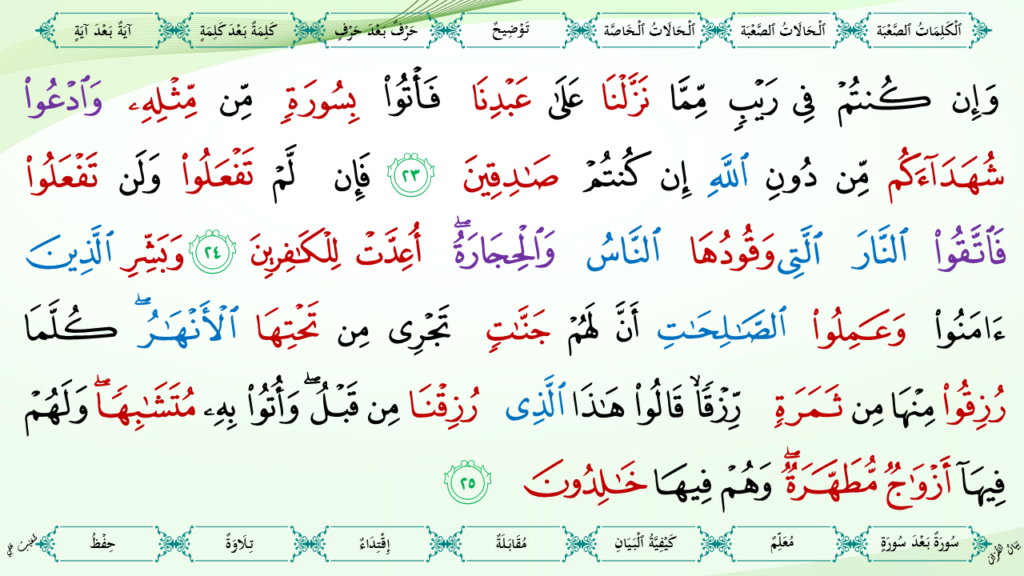 اَلْكَلِمَاتُ الصَّعْبَة اَلْحَالَاتُ الصَّعْبَة اَلْحَالَاتُ الْخَاصَّة تَوْضِيحٌ حَرْفٌ بَعْدَ حَرْفٍ كَلِمَةٌ بَعْدَ كَلِمَةٍ آيَةٌ بَعْدَ آيَةٍ
وَإِن كُنتُمْ فِي رَيْبٍ مِّمَّا نَزَّلْنَا عَلَىٰ عَبْدِنَا فَأْتُوا۟ بِسُورَةٍ مِّن مِّثْلِهِۦ وَٱدْعُوا۟
شُهَدَآءَكُم مِّن دُونِ ٱللَّهِ إِن كُنتُمْ صَـٰدِقِينَ ٢٣ فَإِن لَّمْ تَفْعَلُوا۟ وَلَن تَفْعَلُوا۟
فَٱتَّقُوا۟ ٱلنَّارَ ٱلَّتِى وَقُودُهَا ٱلنَّاسُ وَٱلْحِجَارَةُ ۖ أُعِدَّتْ لِلْكَـٰفِرِينَ ٢٤ وَبَشِّرِ ٱلَّذِينَ
ءَامَنُوا۟ وَعَمِلُوا۟ ٱلصَّـٰلِحَـٰتِ أَنَّ لَهُمْ جَنَّـٰتٍ تَجْرِى مِن تَحْتِهَا ٱلْأَنْهَـٰرُ ۖ كُلَّمَا
رُزِقُوا۟ مِنْهَا مِن ثَمَرَةٍ رِّزْقًا ۙ قَالُوا۟ هَـٰذَا ٱلَّذِى رُزِقْنَا مِن قَبْلُ ۖ وَأُتُوا۟ بِهِۦ مُتَشَـٰبِهًا ۖ وَلَهُمْ
فِيهَآ أَزْوَٰجٌ مُّطَهَّرَةٌ ۖ وَهُمْ فِيهَا خَـٰلِدُونَ ٢٥
سُورَةٌ بَعْدَ سُورَةٍ مُعَلِّمٌ كَيْفِيَّةُ الْبَيَانِ مُقَابَلَةٌ إِقْتِدَاءٌ تِلَاوَةٌ حِفْظٌ
بَيَانُ الْقُرْآن